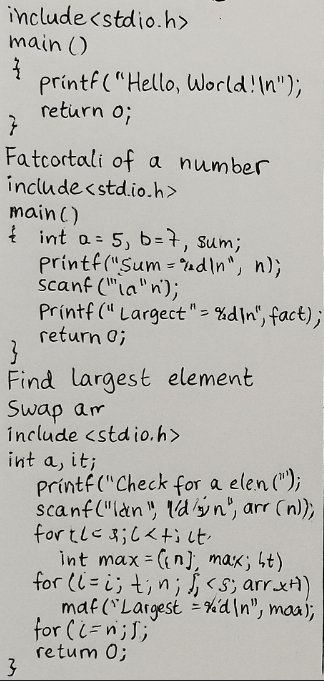 include<stdio.h>
main()
{
printf("Hello, World!\n");
return 0;
}
Fatcortali of a number
include<std.io.h>
main()
{ int a=5, b=7, sum;
printf("Sum = %d\n", n);
scanf("\a"n);
printf("Largect"=%d\n", fact);
return 0;
}
Find largest element
Swap arr
include <stdio.h>
int a, it;
printf("Check for a elen(");
scanf( arr (n));
int max = max;
for (i=i; t; n;
"Largest =%d\n", maa);
for (i=n;
return 0;
}